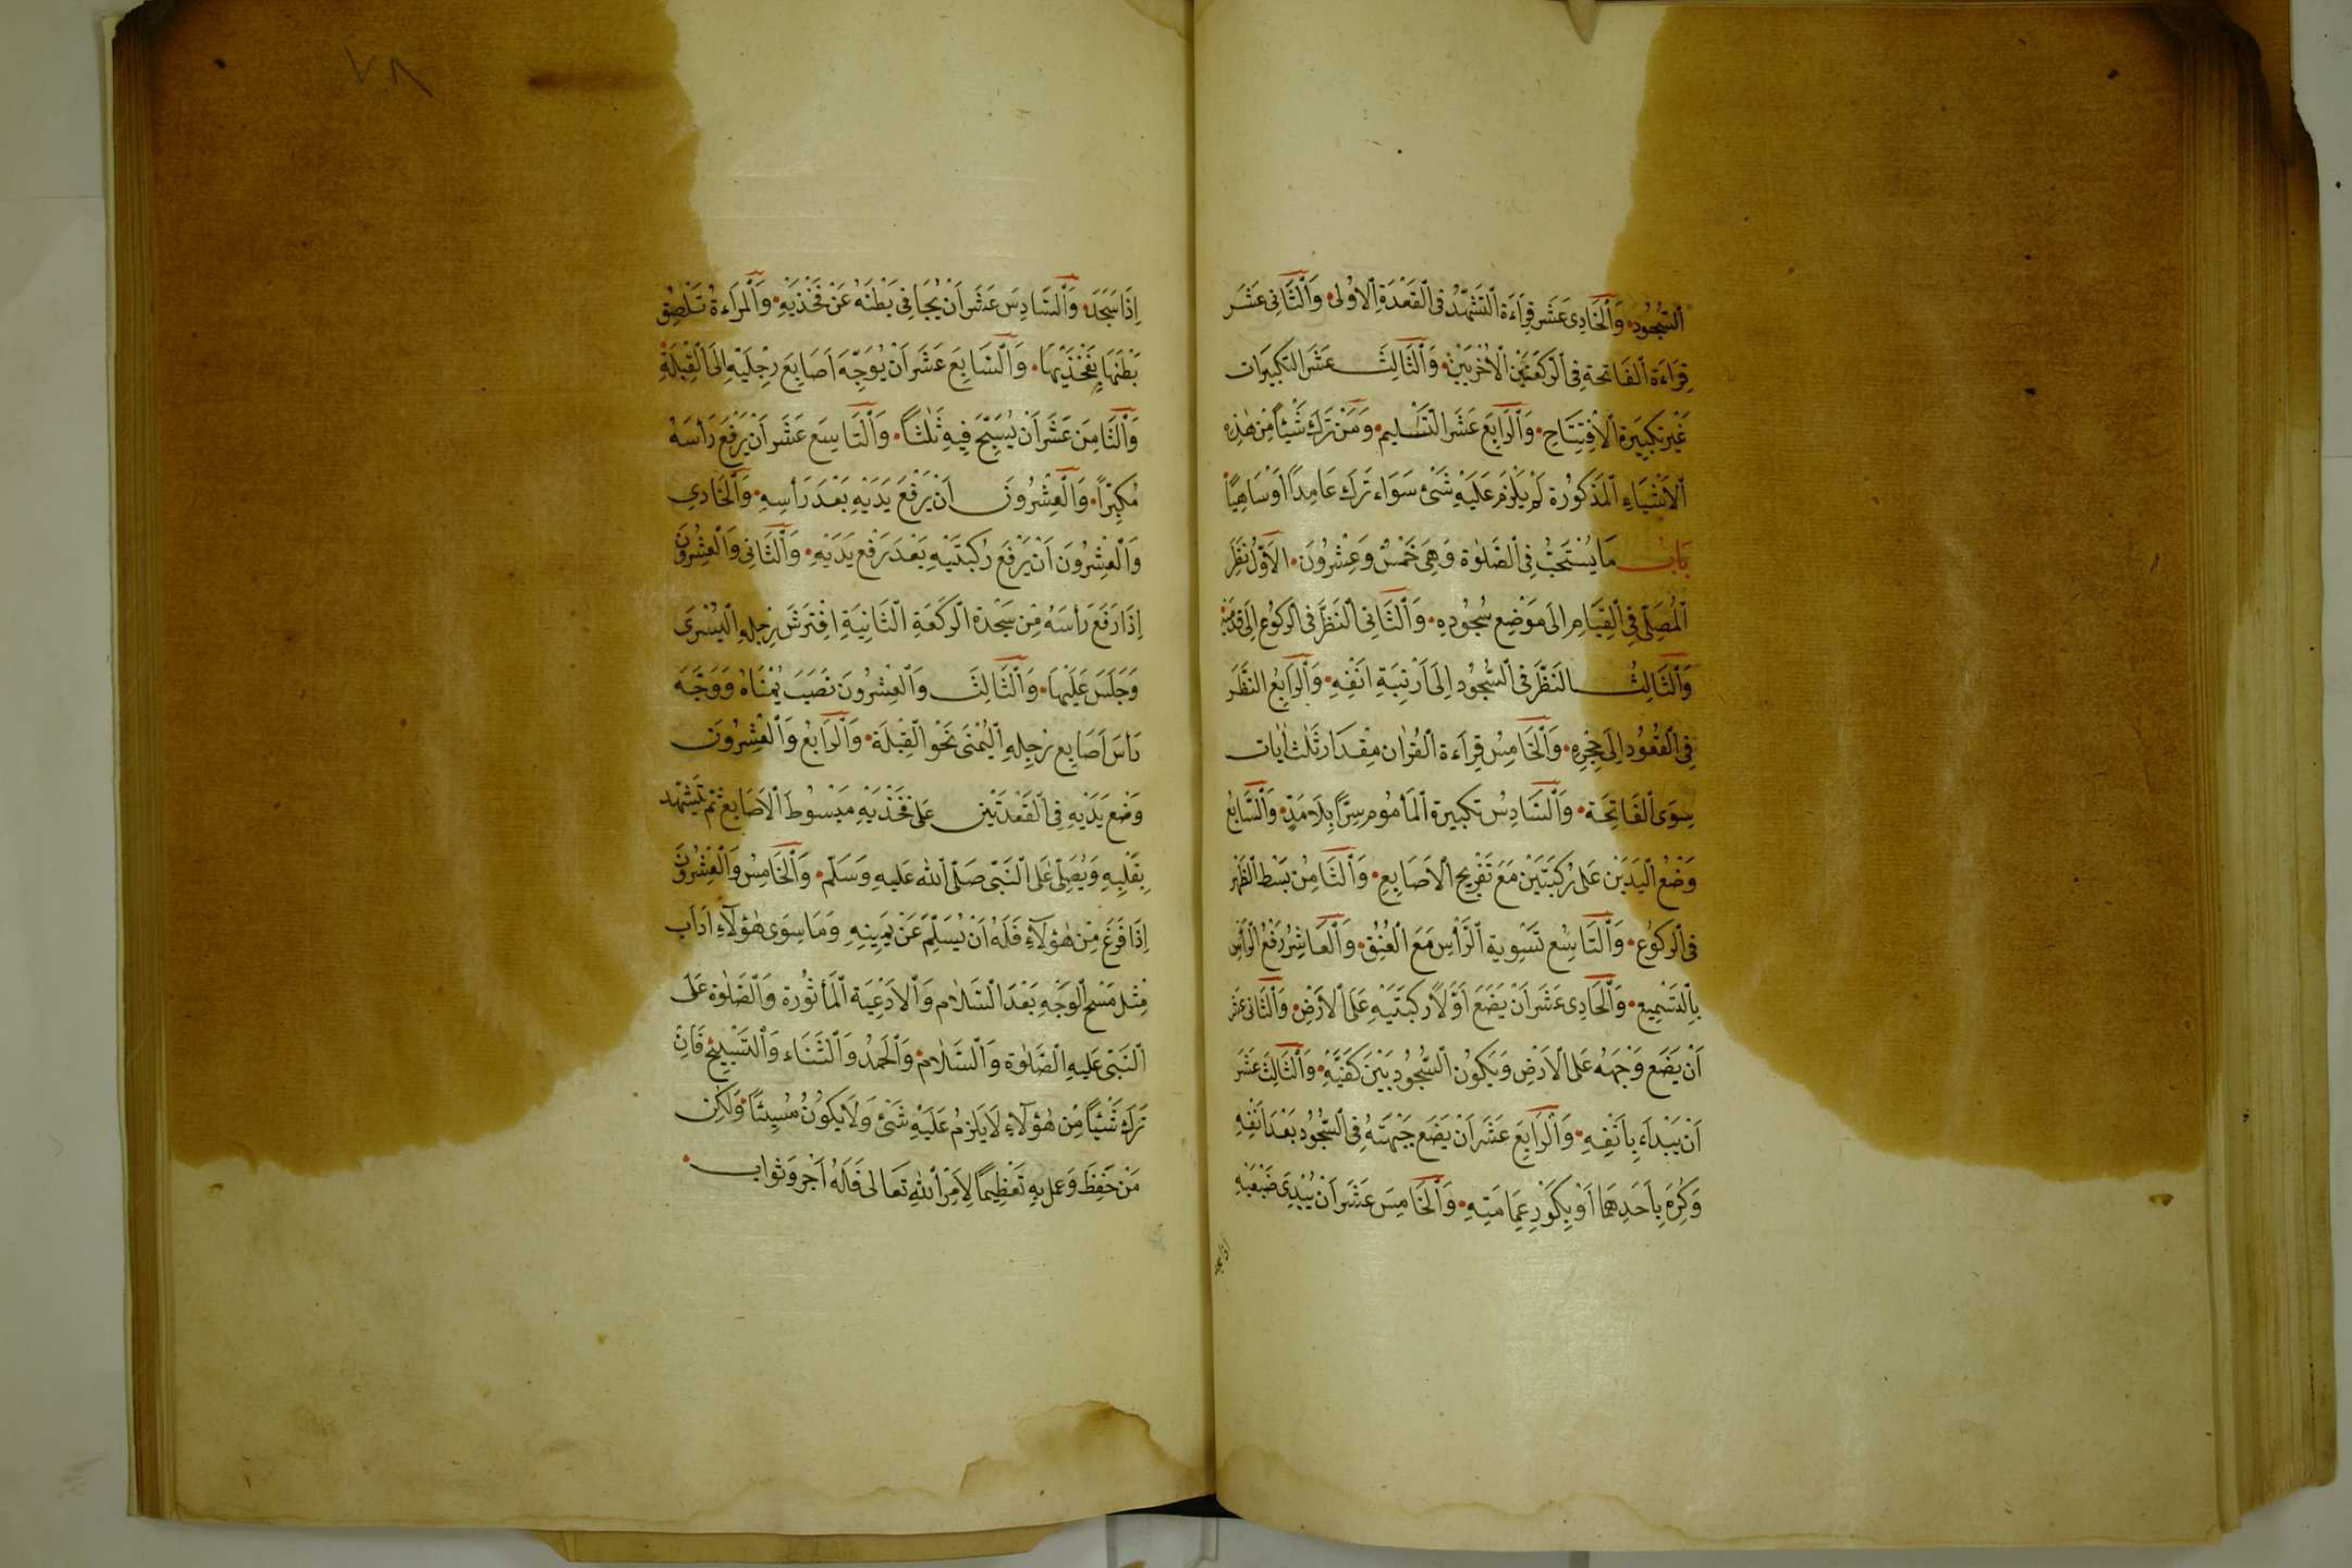 اَلسُّجُودِ وَاَلْحَادِى عَشَرَ قِرَاءَةُ اَلتَّشَهُّدِ فِى اَلْقَعْدَةِ اَلْاُولٰى وَاَلثَّانِى عَشَرَ
قِرَاءَةُ اَلْفَاتِحَةِ فِى اَلرَّكْعَتَيْنِ اَلْاُخْرَيَيْنِ وَاَلثَّالِثَ عَشَرَ التَّكْبِيرَات
غَيْرَ تَكْبِيرَةِ اَلْاِفْتِتَاحِ وَاَلرَّابِعَ عَشَرَ اَلتَّسْلِيم وَمَنْ تَرَكَ شَيْئًا مِنْ هٰذِهِ
اَلْاَشْيَاءِ اَلْمَذْكُورَة لَمْ يَلْزَم عَلَيْهِ شَىْءٌ سَوَاء تَرَكَ عَامِدًا اَوْ سَاهِيًا
بَابُ مَا يُسْتَحَبُّ فِى اَلصَّلٰوة وَهِىَ خَمْسٌ وَعِشْرُونَ اَلْاَوَّلُ نَظَرُ
اَلْمُصَلِّى فِى اَلْقِيَامِ اِلٰى مَوْضِعِ سُجُودِهِ وَاَلثَّانِى اَلنَّظَرُ فِى اَلرُّكُوعِ اِلٰى قَدَمَيْهِ
وَاَلثَّالِثُ النَّظَرُ فِى اَلسُّجُودِ اِلٰى اَرْنَبَةِ اَنْفِهِ وَاَلرَّابِعُ النَّظَرَ
فِى اَلْقُعُودِ اِلٰى حِجْرِهِ وَاَلْخَامِسُ قِرَاءَة اَلْقُرْاٰن مِقْدَارَ ثَلٰث اٰيَات
سِوَى اَلْفَاتِحَة وَاَلسَّادِسُ تَكْبِيرة اَلْمَأْمُومِ سِرًّا بِلَا مَدٍّ وَاَلسَّابِعُ
وَضْعُ اَلْيَدَيْنِ عَلٰى رُكْبَتَيْنِ مَعَ تَفْرِيجِ اَلْاَصَابِعِ وَاَلثَّامِنُ بَسْطُ اَلظَّهْرِ
فِى اَلرُّكُوعِ وَاَلتَّاسِعُ تَسْوِيَة اَلرَّأْسِ مَعَ اَلْعُنُقِ وَاَلْعَاشِرُ رَفْعُ اَلرَّأْسِ
بِالتَّسْمِيعِ وَاَلْحَادِى عَشَرَ اَنْ يَضَعَ اَوَّلًا رُكْبَتَيْهِ عَلَى اَلْاَرْضِ وَاَلثَّانِى عَشَرَ
اَنْ يَضَعَ وَجْهَهُ عَلَى الْاَرْضِ وَيَكُونُ اَلسُّجُودُ بَيْنَ كَفَّيْهِ وَاَلثَّالِثَ عَشَرَ
اَنْ يَبْدَاءَ بِاَنْفِهِ وَاَلرَّابِعَ عَشَرَ اَنْ يَضَعَ جَبْهَتَهُ فِى اَلسُّجُودِ بَعْدَ اَنْفِهِ
وَكُرِهَ بِاَحَدِهِمَا اَوْ بِكَوْرِ عِمَامَتِهِ وَاَلْخَامِسَ عَشَرَ اَنْ يُبْدِىَ ضَبْعَيْهِ
اذا سجد
٧٨
اِذَا سَجَدَ وَاَلسَّادِسَ عَشَرَ اَنْ يُجَافِىَ بَطْنَهُ عَنْ فَخْذَيْهِ وَاَلْمَرْاَءةُ تَلْصِقُ
بَطْنَهَا بِفَخْذَيْهَا وَاَلسَّابِعَ عَشَرَ اَنْ يُوَجِّهَ اَصَابِعَ رِجْلَيْهِ اِلَى اَلْقِبْلَةِ
وَاَلثَّامِنَ عَشَرَ اَنْ يُسَبِّحَ فِيهِ ثَلٰثًا وَاَلتَّاسِعَ عَشَرَ اَنْ يَرْفَعَ رَأْسَهُ
مُكَبِّرًا وَاَلْعِشْرُونَ اَنْ يَرْفَعَ يَدَيْهِ بَعْدَ رَأْسِهِ وَاَلْحَادِي
وَاَلْعِشْرُونَ اَنْ يَرْفَعَ رُكْبَتَيْهِ بَعْدَ رَفْعِ يَدَيْهِ وَاَلثَّانِى وَاَلْعِشْرُونَ
اِذَا رَفَعَ رَأْسَهُ مِنْ سَجْدَة اَلرَّكْعَةِ اَلثَّانِيَةِ اِفْتَرَشَ رِجْلِهِ اَلْيُسْرٰى
وَجَلَسَ عَلَيْهَا وَاَلثَّالِثَ وَاَلْعِشْرُونَ نَصَبَ يُمْنَاهُ وَوَجَّهَ
رَأْسَ اَصَابِعِ رِجْلِهِ اَلْيُمْنٰى نَحْوَ اَلْقِبْلَة وَاَلرَّابِعُ وَاَلْعِشْرُونَ
وَضْعُ يَدَيْهِ فِى اَلْقَعْدَتَيْنِ عَلٰى فَخْذَيْهِ مَبْسُوطَ اَلْاَصَابِعِ ثُمَّ يَتَشَهَّد
بِقَلْبِهِ وَيُصَلِّى عَلَى اَلنَّبِىِّ صَلَّى اَللّٰه عَلَيهِ وَسَلَّم وَاَلْخَامِسُ وَاَلْعِشْرُونَ
اِذَا فَرَغَ مِنْ هٰؤُلَاءِ فَلَهُ اَنْ يُسَلِّمَ عَنْ يَمِينِهِ وَمَا سِوَى هٰؤُلَاءِ اٰدَاب
مِثْلَ مَسْحِ اَلْوَجْهِ بَعْدَ اَلسَّلَام وَاَلْاَدْعِيَة اَلْمَأْثُورَة وَاَلصَّلٰوة عَلَى
اَلنَّبِىِّ عَلَيهِ اَلصَّلٰوة وَاَلسَّلَام وَاَلْحَمْدُ وَاَلثَّنَاء وَاَلتَّسْبِيحُ فَاِنْ
تَرَكَ شَيْئًا مِنْ هٰؤُلَاءِ لَا يَلْزَمُ عَلَيْهِ شَىْءٌ وَلَا يَكُونُ مُسِيئًا وَلٰكِنْ
مَنْ حَفِظَ وَعَمِلَ بِهِ تَعْظِيمًا لِاَمْرِ اَللّٰهِ تَعَالٰى فَلَهُ اَجْر وَثَواب